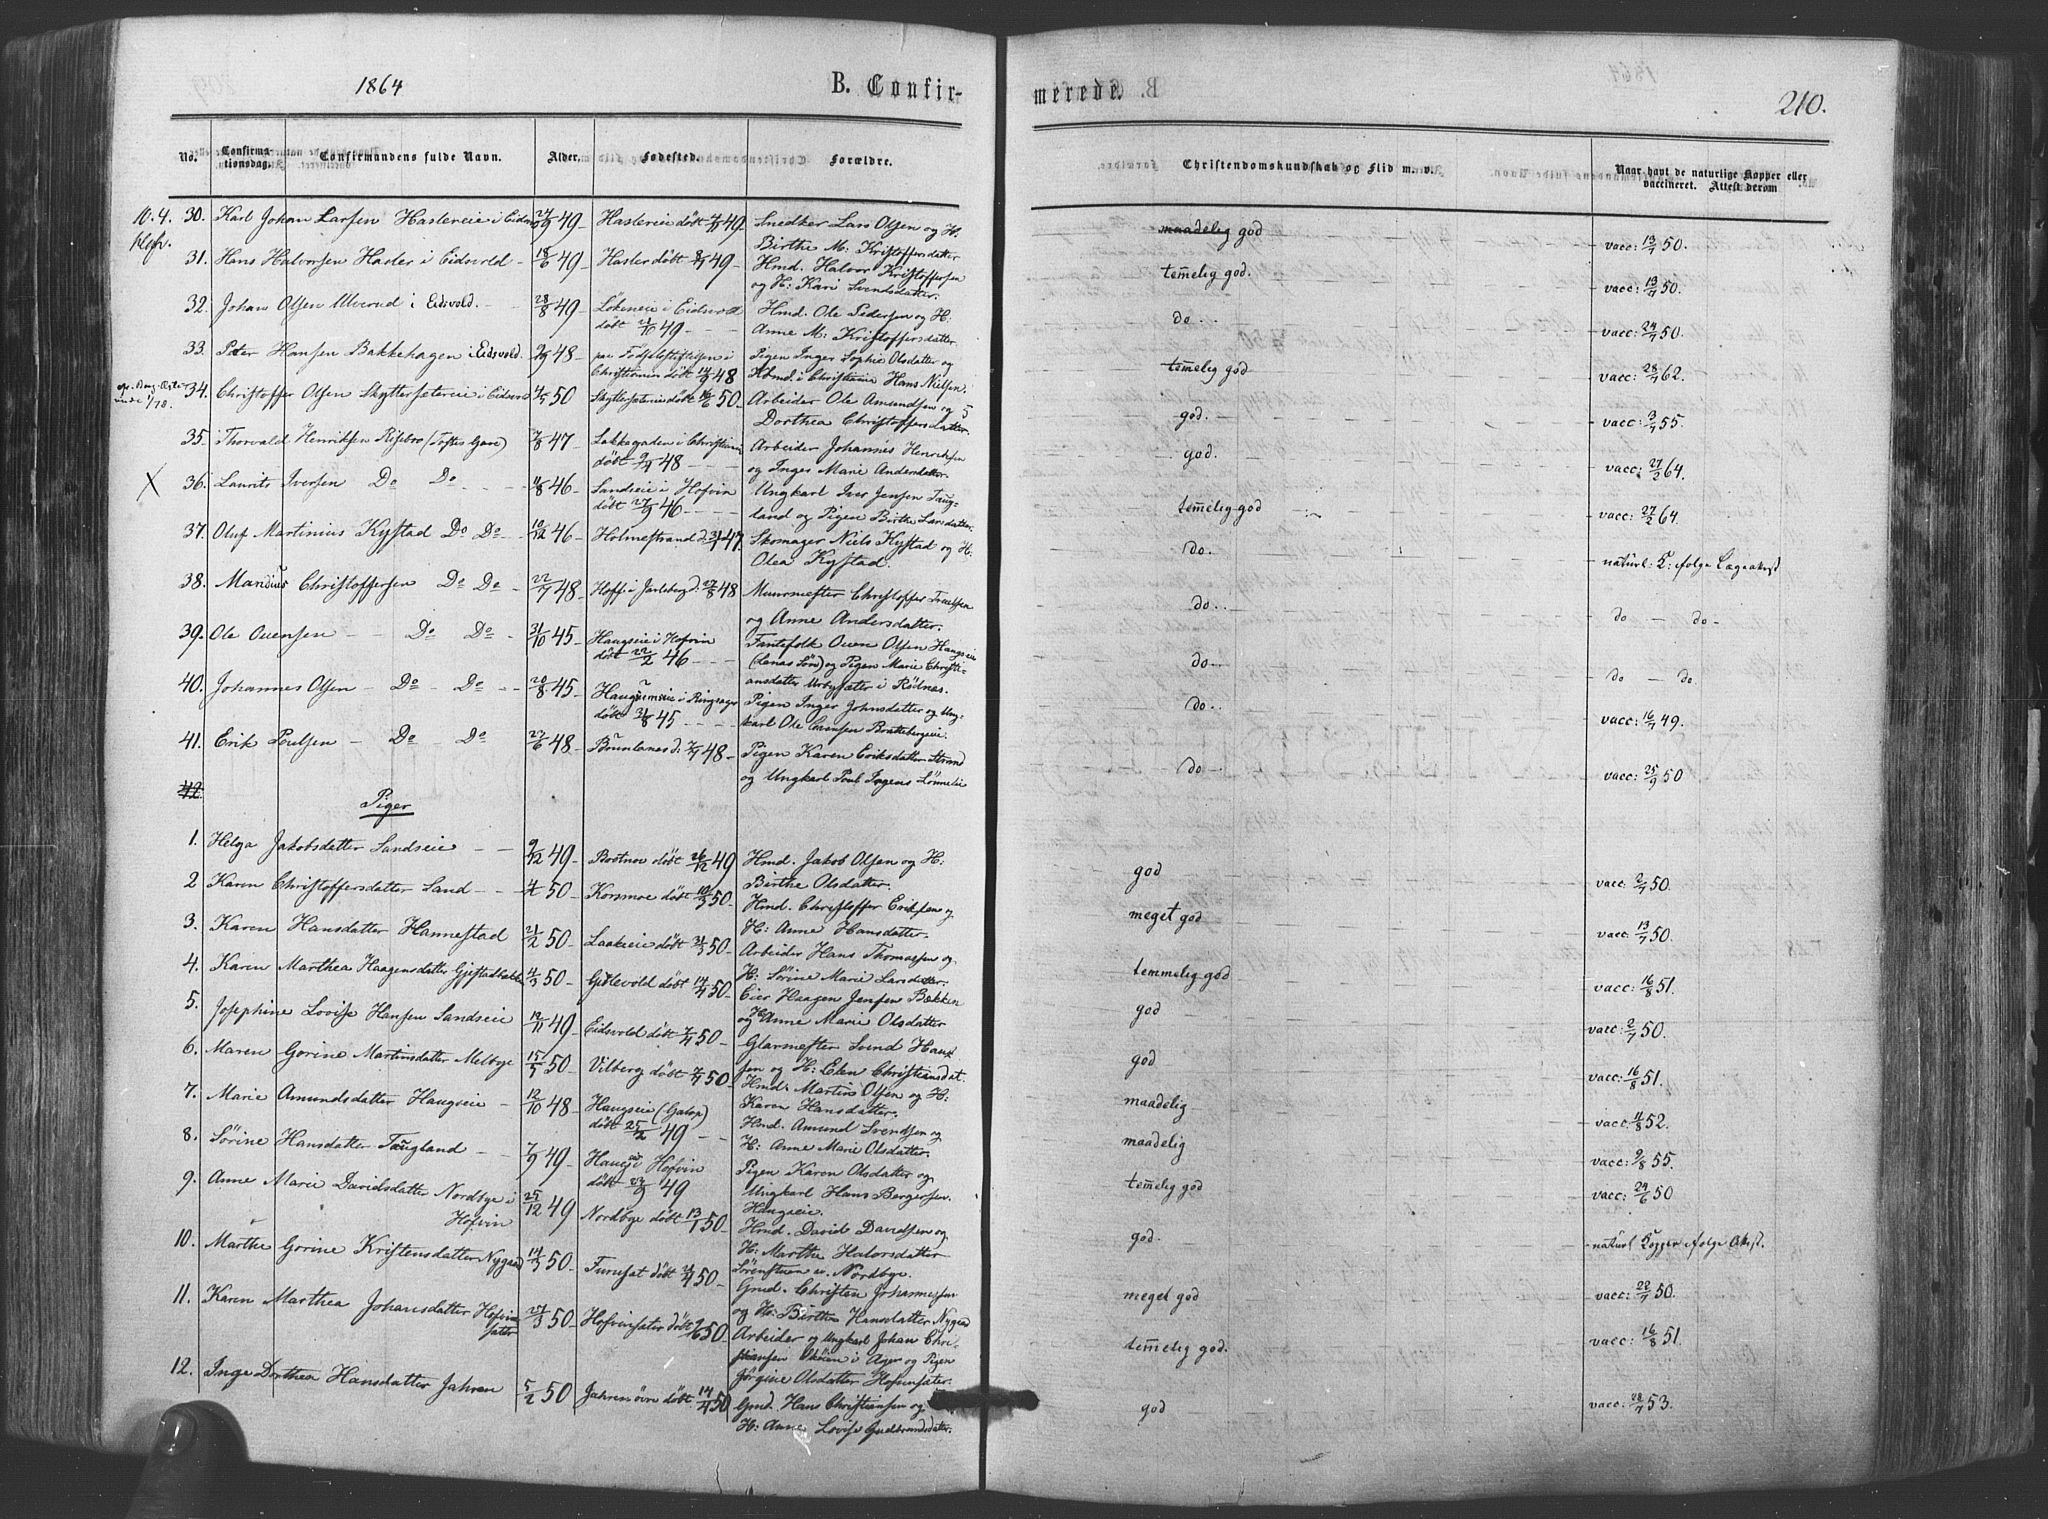 1864 B. Confir-
merede. 210.
No. Confirma-
tionsdag. Confirmandens fulde Navn. Alder. Fødested. Forældre.
Christendomskundskab og Flid m. v. Naar havt de naturlige Kopper eller
vaccineret. Attest derom
30. Karl Johan Larsen Haslereie i Eidsvold 49 Haslereie döbt 49 Snedker Lars Olsen og H.
Birthe M: Kristoffersdatter
maadelig god vacc: 13/7 50.
31. Hans Halvorsen Hasler i Eidsvold 18/6 49 Hasler döbt 49 Hmd. Halvor Kristoffersen
og H: Kari Svendsdatter.
temelig god. vacc: 13/7 50.
32. Johan Olsen Ulverud i Eidsvold. 28/8 49 Lökeneie i Eidsvold Hmd. Ole Pedersen og H:
döbt 21/10 49 Anne M: Kristoffersdatter
do. vacc: 24/7 50.
33. Peter Hansen Bakkehagen i Eidsvold 48 paa Fødselsstiftelsen i Pigen Inger Sophie Olsdatter og
Christiania döbt 14/9 48 i Christiania Hans Nielsen.
temelig god vacc: 28/7 62.
34. Christoffer Olsen Skyttersætereie i Eidsvold 4/5 50 Skyttersætereie döbt 16/6 50 Arbeider Ole Amundsen og
Dorthea Christoffersdatter.
god. vacc: 3/7 55.
35. Thorvald Henriksen Risebro (Toftes Gave) 47 Lakkegaden i Christiania Arbeider Johannes Henriksen
döbt 48 og Inger Marie Andersdatter.
god. vacc: 27/2 64.
X 36. Laurits Iversen Do Do 11/8 46 Sandseie i Hofvin Ungkarl Iver Jensen Taug-
döbt 27/9 46 land og Pigen Birthe Larsdatter.
temelig god vacc: 27/2 64.
37. Oluf Martinius Kystad Do Do 10/12 46 Holmestrand d: 31/1 47 Skomager Niels Kystad og H:
Olea Kystad.
do. naturl: K: ifølge Lægeattest
38. Mandius Christoffersen Do Do 22/7 48 Hoff i Jarlsberg d: 27/8 48 Muurmester Christoffer Truelsen
og Anne Andersdatter.
do. do do
39. Ole Ovensen Do Do 31/10 45 Haugseie i Hofvin Fantefolk Oven Olsen Haugseie
döbt 22/2 46 (Lanas Søn) og Pigen Marie Christi-
ansdatter Urbysæter i Rödnæs.
do. do do.
40. Johannes Olsen Do Do 20/8 45 i Ringsager Pigen Inger Johnsdatter og Ung-
döbt 31/8 45 karl Ole
do. vacc: 16/7 49.
41. Erik Poulsen Do Do 27/6 48 Brunlanes d: 48 Pigen Karen Eriksdatter Strand
og Ungkarl Poul
do. vacc: 25/9 50
42
Piger
1. Helga Jakobsdatter Sandseie 9/12 49 Brotnoe döbt 26/12 49 Hmd. Jakob Olsen og H:
Birthe Olsdatter.
god vacc: 2/7 50.
2 Karen Christoffersdatter Sand 50 Korsmoe döbt 10/3 50 Hmd. Christoffer Eriksen og
H: Anne Hansdatter.
meget god vacc: 13/7 50.
3. Karen Hansdatter Hannestad 21/2 50 Laakeeie döbt 50 Arbeider Hans Thomassen og
H: Sörine Marie Larsdatter.
temmelig god vacc: 16/8 51.
4. Karen Marthea Haagensdatter Gjestadbakke 50 Gislevold döbt 14/4 50 Eier Haagen Jensen Bækken
og H: Anne Marie Olsdatter
god vacc: 2/7 50.
5. Josephine Lovise Hansen Sandseie 49 Eidsvold döbt 50 Glarmester Svend Han-
sen og H: Elen Christiansdat.
god vacc: 16/8 51.
6. Maren Gorine Martinsdatter Melbye 15/5 50 Vilberg döbt 50 Hmd: Martin Olsen og H:
Karen Hansdatter.
maadelig vacc: 11/8 52.
7. Marie Amundsdatter Haugseie 12/10 48 Haugseie (Galop) Hmd. Amund Svendsen og
döbt 25/2 49 H: Anne Marie Olsdatter.
maadelig vacc: 9/8 55.
8. Sörine Hansdatter Taugland 7/9 49 Haugs i Hofvin Pigen Karen Olsdatter og
döbt 23/9 49 Ungkarl Hans Bergersen.
Haugseie.
temelig god vacc: 24/6 50
9. Anne Marie Davidsdatter Nordbye i 25/12 49 Nordbye döbt 13/1 50 Hmd. David Davidsen og
Hofvin H: Marthe Halvorsdatter
Nordbye.
god. naturl Kopper ifølge Attest.
10. Marthe Gorine Kristensdatter Nygaard 14/3 50 Furuset döbt 21/4 50 Gmd. Christen Johannessen
og H: Birthe Hansdatter Nygaard
meget god vacc: 22/7 50.
11. Karen Marthea Johansdatter Hofvin 27/3 50 Hofvinsæter döbt 9/6 50 Arbeider og Ungkarl Johan Chri-
sæter stiansen Ökern i Ager og Pigen
Jörgine Olsdatter Hofvinsæter.
temelig god. vacc: 16/8 51.
12. Inge Dorthea Hansdatter Jahren 5/2 50 Jahren övre döbt 14/4 50 Gmd. Hans Christiansen og
H: Anne Lovise Gudbrandsdatter.
god vacc: 28/7 53.